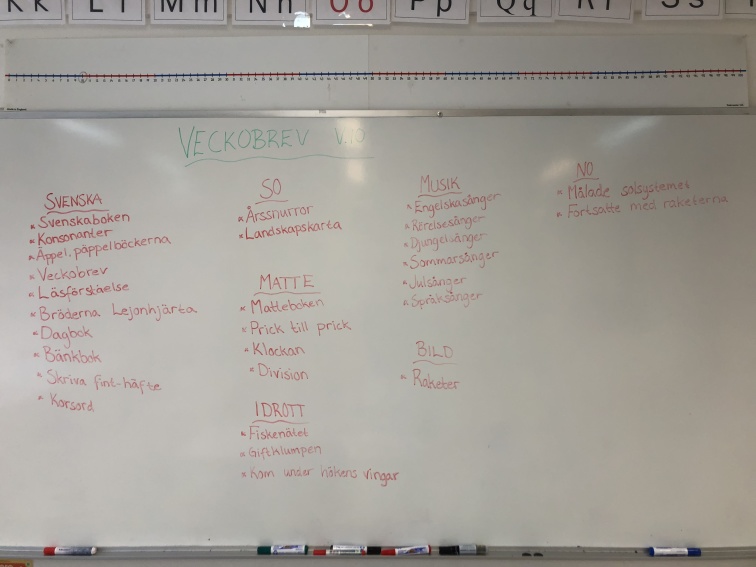 Kk Ll Mm Nn Oo Pp Qq Rr Ss
VECKOBREV V.10
SVENSKA
* Svenskaboken
* Konsonanter
* Äppel, päppelböckerna
* Veckobrev
* Läsförståelse
* Bröderna Lejonhjärta
* Dagbok
* Bänkbok
* Skriva fint-häfte
* Korsord
SO
* Årssnurror
* Landskapskarta
MATTE
* Matteboken
* Prick till prick
* Klockan
* Division
IDROTT
* Fiskenätet
* Giftklumpen
* Kom under hökens vingar
MUSIK
* Engelskasånger
* Rörelsesånger
* Djungelsånger
* Sommarsånger
* Julsånger
* Språksånger
BILD
* Raketer
NO
* Målade solsystemet
* Fortsatte med raketerna